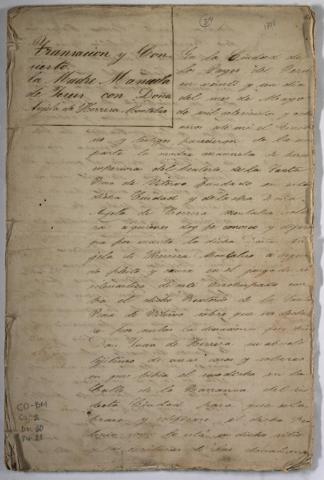 24
1708
Transacion y Con
cierto
la Madre Manuela
de Jesus con Doña
Anjela de Herrera Montalvo
En la Ciudad de
los Reyes del Peru
en veinte y un dia
del mes de Mayo
de mil setecientos y ocho
años ante mi el Escriva
no y testigos parecieron de la una
parte la madre Manuela de Jesus
superiora del Beaterio de la Santa
Rosa de Viterbo fundado en esta
dicha Ciudad y de la otra Doña
Anjela de Herrera Montalvo
a quienes doy fe conosco y dijeron
que por cuanto la dicha Doña An
jela de Herrera Montalvo a seguido
pleito y causa en el jusgado
eclesiastico de este Arzobispado con
tra el dicho Beaterio de la Santa
Rosa de Viterbo sobre que se decla
re por nulas la donacion que hizo
Don Juan de Herrera su abuelo
lejitimo de unas casas y solares
en que fabricó el en la
calle de la Barranca del
de esta Ciudad para que
el dicho Bea
terio en dicho sitio
las escrituras de las donacion
CO-BM
Cj-2
Dn-60